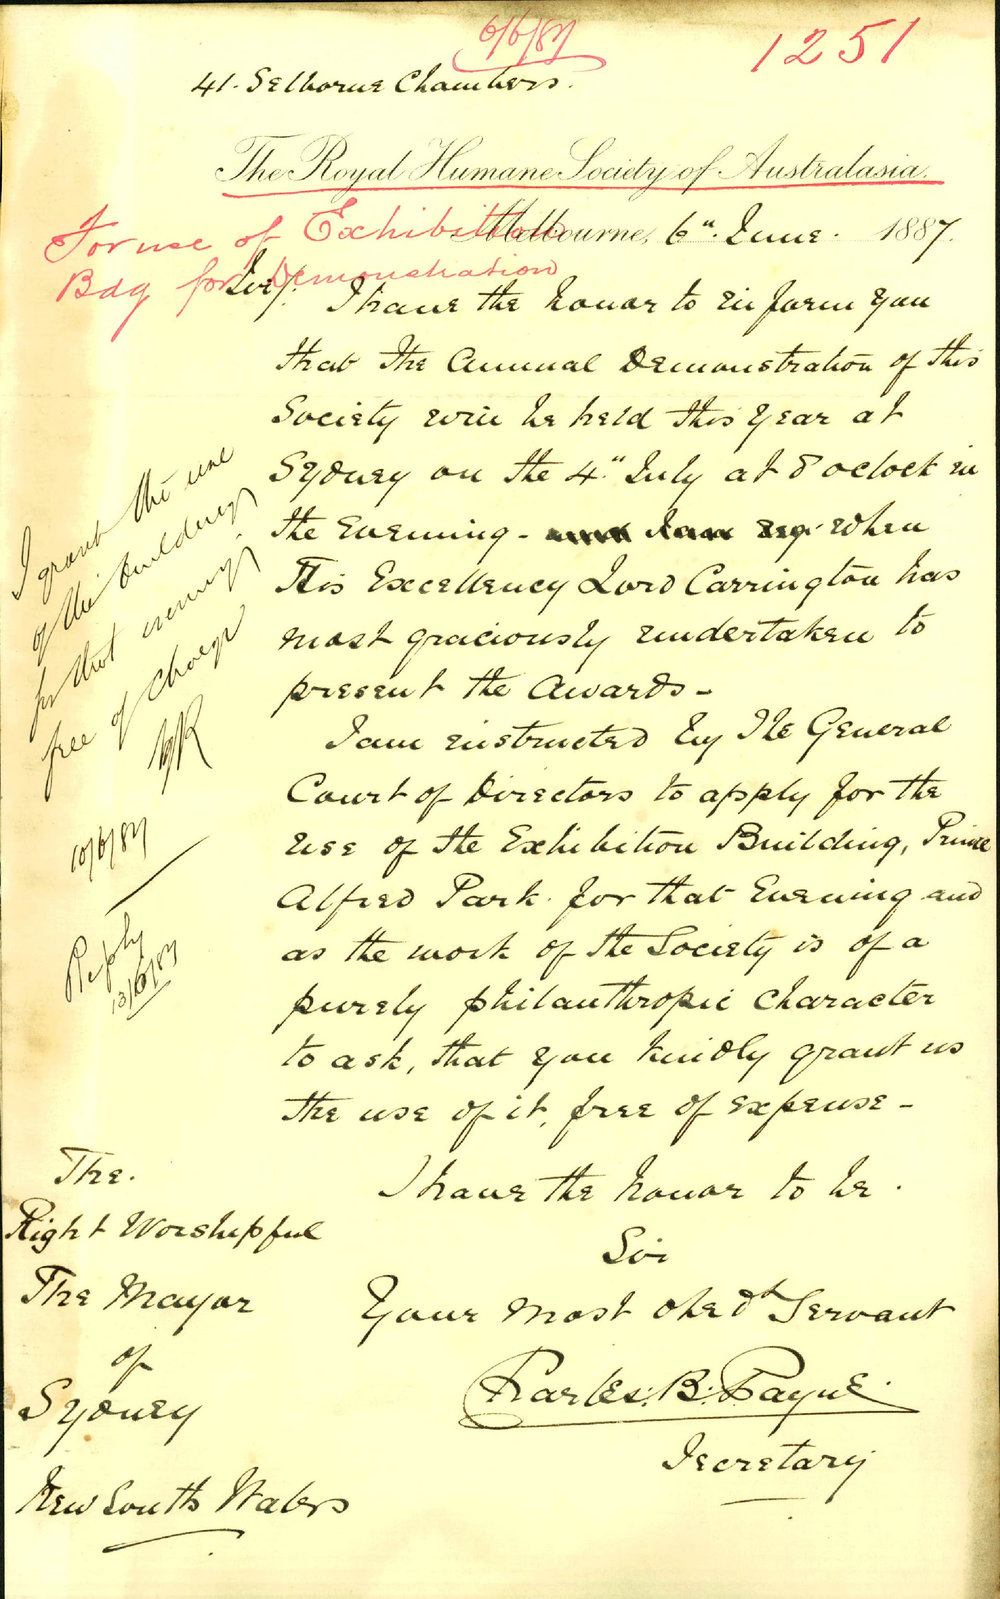 6/6/87
1251
41. Selborne Chambers.
The Royal Humane Society of Australasia.
Melbourne, 6th. June. 1887.
For use of Exhibition
Bdg for Demonstration
Sir/.
I have the honor to inform you
that the Annual Demonstration of this
Society will be held this year at
Sydney on the 4th July at 8 oclock in
the Evening - when
His Excellency Lord Carrington has
most graciously undertaken to
present the Awards -
I am instructed by The General
Court of Directors to apply for the
use of the Exhibition Building, Prince
Alfred Park. for that Evening and
as the work of the Society is of a
purely philanthropic character
to ask, that you kindly grant us
the use of it, free of expense -
I have the honor to be.
Sir
Your most obedt Servant
Charles. B. Payne.
Secretary
The.
Right Worshipful
The Mayor
of
Sydney
New South Wales
I grant the use
of the buildings
for that evening
free of charge
10/6/87
Reply
13/6/87